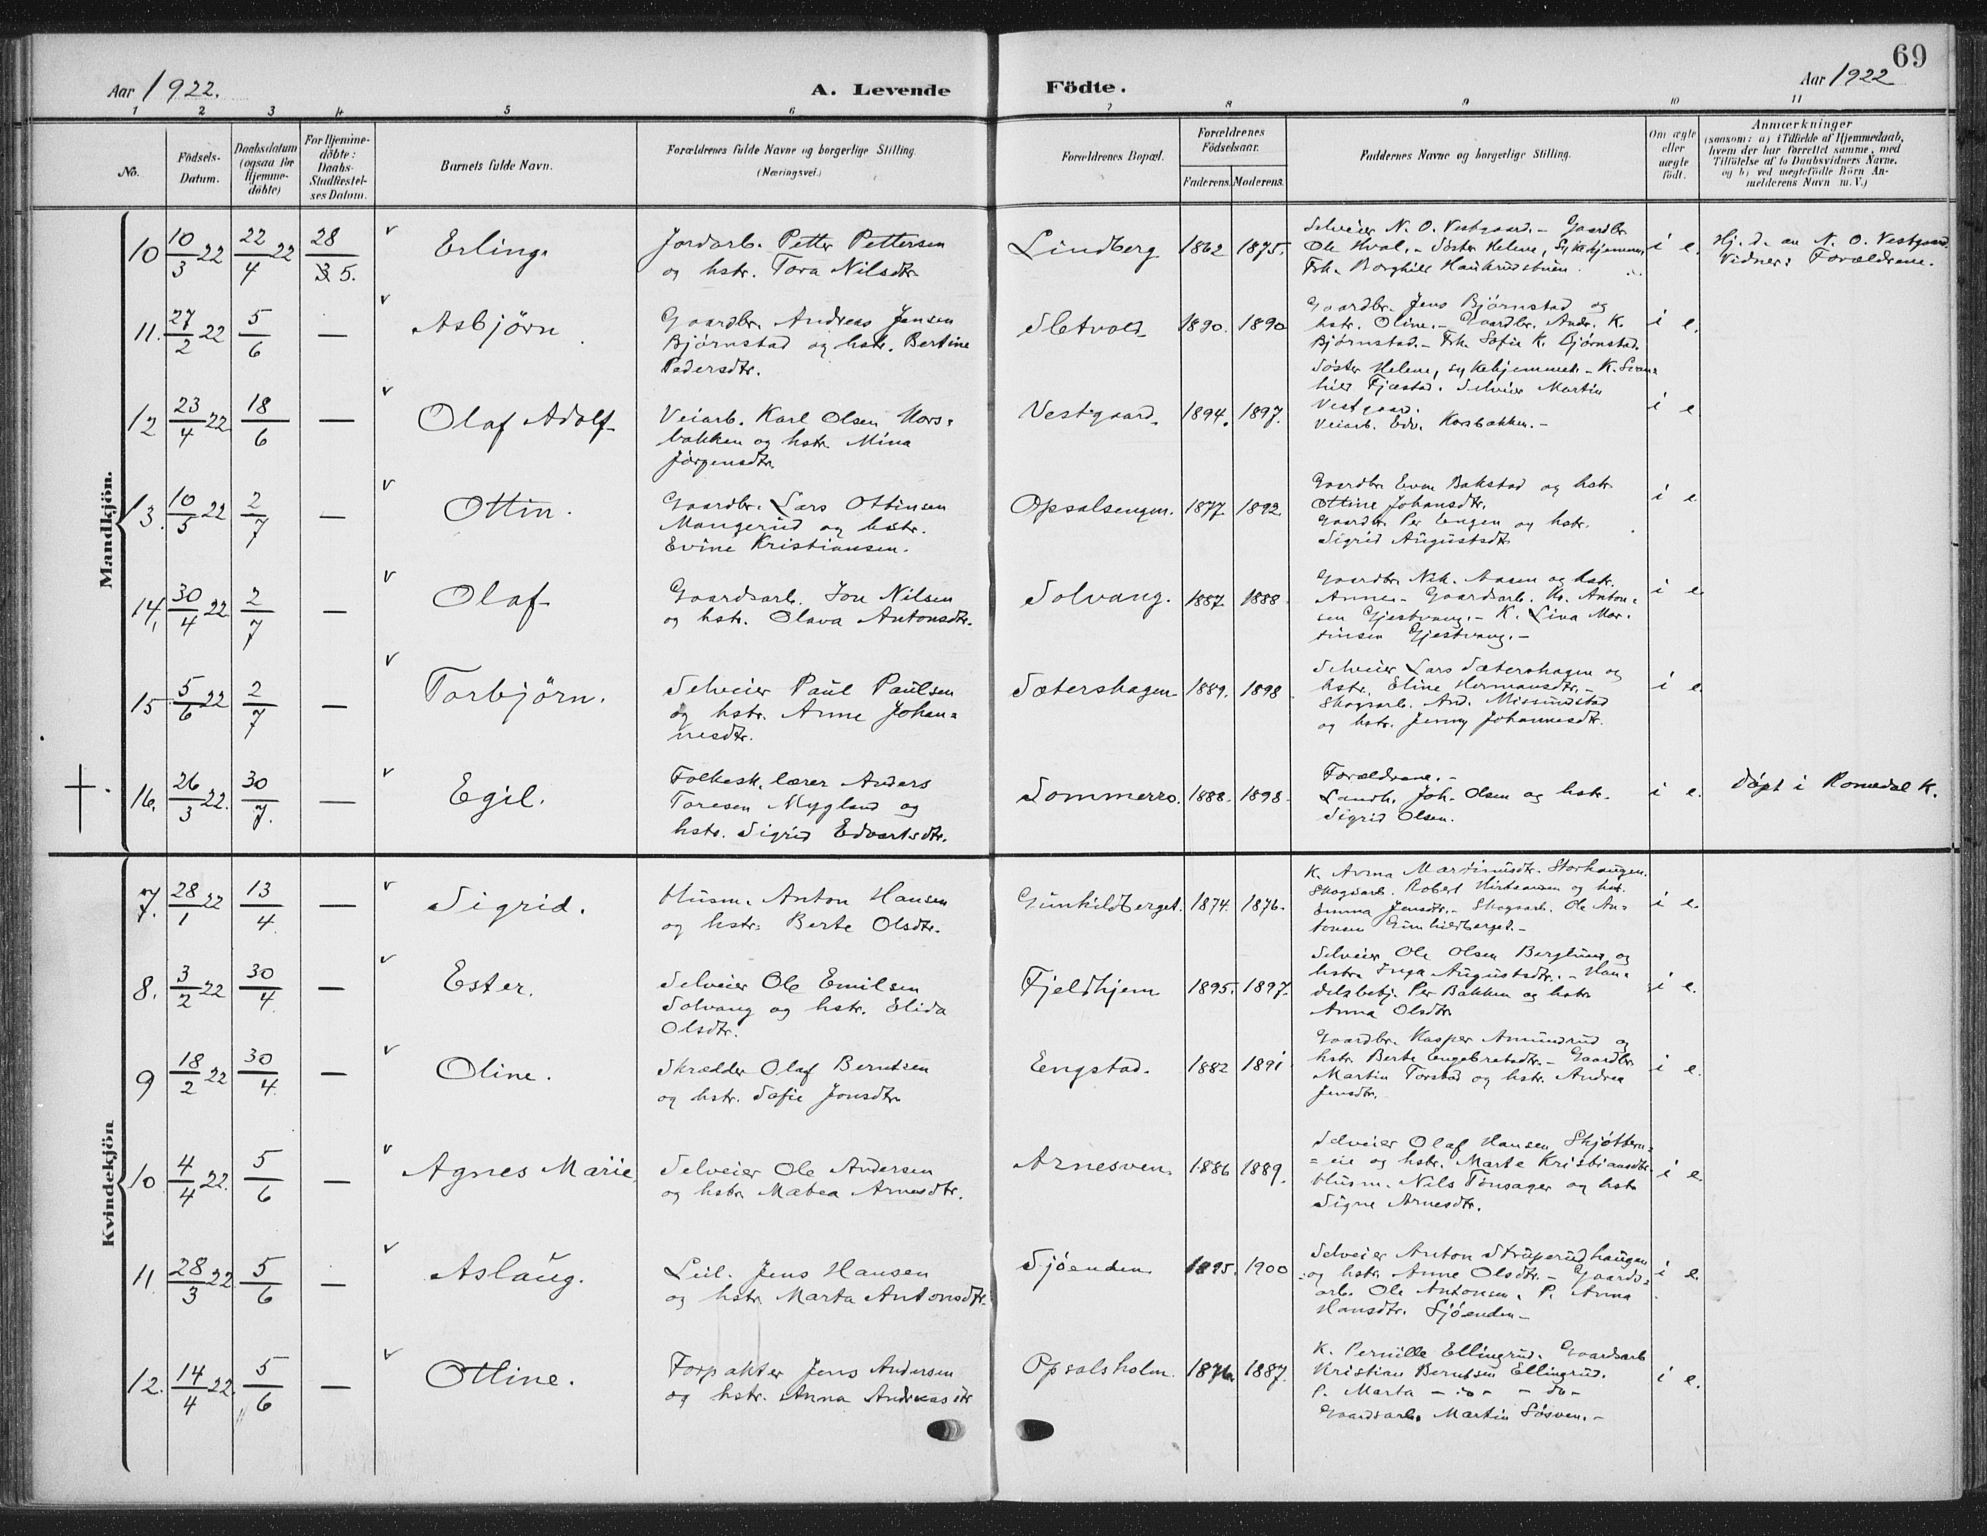 69
Aar 1922.
A. Levende Födte.
Aar 1922
1 2 3 4 5 6 7 8 9 10 11
No.
Födsels-Datum.
Daabsdatum (ogsaa for Hjemme-döbte)
For Hjemme-döbte: Daabs-Stadfæstel-ses Datum.
Barnets fulde Navn.
Forældrenes fulde Navne og borgerlige Stilling. (Næringsvei.)
Forældrenes Bopæl.
Forældrenes Födselsaar.
Faderens. Moderens.
Faddernes Navne og borgerlige Stilling.
Om ægte eller uægte födt.
Anmærkninger
(saasom: a) i Tilfælde af Hjemmedaab, hvem der har forrettet samme, med Tilföielse af to Daabsvidners Navne, og b) ved uægtefödte Börn An-melderens Navn m.V.)
Mandkjön.
10 10/3 22 22/4 22 28/5. Erling.
Jordarb. Petter Pettersen
og hstr. Tora Nilsdtr.
Lindberg 1862 1875.
Selveier N. O. Vestgaard. - Gaardbr.
Ole Hval. - Søster Helene, Sykehjemmet,
Frk. Borghild Haukrudstuen.
i e.
Hj. d. av N. O. Vestgaard.
Vidner: Forældrene.
11. 27/2 22 5/6 — Asbjørn
Gaardbr. Andreas Jensen
Bjørnstad og hstr. Bertine
Pedersdtr.
Sletvold 1890. 1890
Gaardbr. Jens Bjørnstad og
hstr. Oline. - Gaardbr. Andr. K.
Bjørnstad. - Frk. Sofie K. Bjørnstad.
i e.
12 23/4 22 18/6 — Olaf Adolf
Veiarb. Karl Olsen Kors=
bakken og hstr. Mina
Jørgensdtr.
Vestgaard. 1894. 1897.
Søster Helene, sykehjemmet. - K. Svan=
hild Fjæstad. Selveier Martin
Vestgaard.
Veiarb. Edv. Korsbakken. -
i e
13. 10/5 22 2/7 — Ottin.
Gaardbr. Lars Ottinsen
Mangerud og hstr.
Evine Kristiansen.
Opsalsengen. 1877. 1892.
Gaardbr. Even Bakstad og hstr.
Ottine Johansdtr.
Gaardbr. Per Engen og hstr.
Sigrid Augustsdtr.
i e
14, 30/4 22 2/7 — Olaf
Gaardsarb. Jon Nilsen
og hstr. Olava Antonsdtr.
Solvang. 1887. 1888.
Gaardbr. Nik. Aasen og hstr.
Anne. - Gaardsarb. Kr. Anton=
sen Gjestvang. - K. Lina Mar=
tinsen Gjestvang. -
i e.
15 5/6 22 2/7 — Torbjørn.
Selveier Paul Paulsen
og hstr. Anne Johan=
nesdtr.
Sætershagen 1889. 1898.
Selveier Lars Sætershagen og
hstr. Eline Hermansdtr. -
Skogsarb. And. Missundstad
og hstr. Jenny Johannesdtr.
i e.
16. 26/3 22. 30/7. — Egil.
Folkesk. lærer Anders
Toresen Mygland og
hstr. Sigrid Edvartsdtr.
Sommerro. 1888. 1898.
Forældrene. -
Landh. Joh. Olsen og hstr.
Sigrid Olsen.
i e.
Døpt i Romedal K.
Kvindekjön
7. 28/1 22 13/4 — Sigrid.
Husm. Anton Hansen
og hstr. Berte Olsdtr.
Gunhildberget. 1874. 1876.
K. Anna Martinusdtr. Storhaugen.
Skogsarb. Robert og hstr.
Emma Jensdtr. - Skogsarb. Ole An=
tonsen Gunhildberget. -
i e.
8. 3/2 22 30/4 — Ester.
Selveier Ole Emilsen
Solvang og hstr. Elida
Olsdtr.
Fjeldhjem 1895. 1897.
Selveier Ole Olsen Berglund og
hstr. Inga Augustsdtr. - Han=
delsbetj. Per Bakken og hstr.
Anna Olsdtr.
i e.
9 18/2 22 30/4 — Oline.
Skrædder Olaf Berntsen
og hstr. Sofie Jonsdtr.
Engstad. 1882 1891
Gaardbr. Kasper Amundrud og
hstr. Berte Engebretsdtr. - Gaardbr.
Martin Torstad og hstr. Andrea
Jensdtr.
i e.
10. 4/4 22. 5/6 — Agnes Marie,
Selveier Ole Andersen
og hstr. Mabea Arnesdtr.
Arnesven. 1886 1889.
Selveier Olaf Hansen Skjøttern=
=eie og hstr. Marte Kristiansdtr.
Husm. Nils Tønsager og hstr.
Signe Arnesdtr.
i e.
11. 28/3 22. 5/6 — Aslaug.
Leil. Jens Hansen
og hstr. Marta Antonsdtr.
Sjøenden. 1895. 1900
Selveier Anton Struperudhaugen
og hstr. Anne Olsdtr. - Gaards=
arb. Ole Antonsen. P. Anna
Hansdtr. Sjøenden -
i e.
12. 14/4 22. 5/6 — Ottine.
Forpakter Jens Andersen
og hstr. Anna Andreasdtr
Opsalsholm. 1887.
K. Pernille Ellingrud. Gaardsarb.
Kristian Berntsen Ellingrud.
P. Marta - do - - do -
Gaardsarb. Martin Løsven. -
i e.